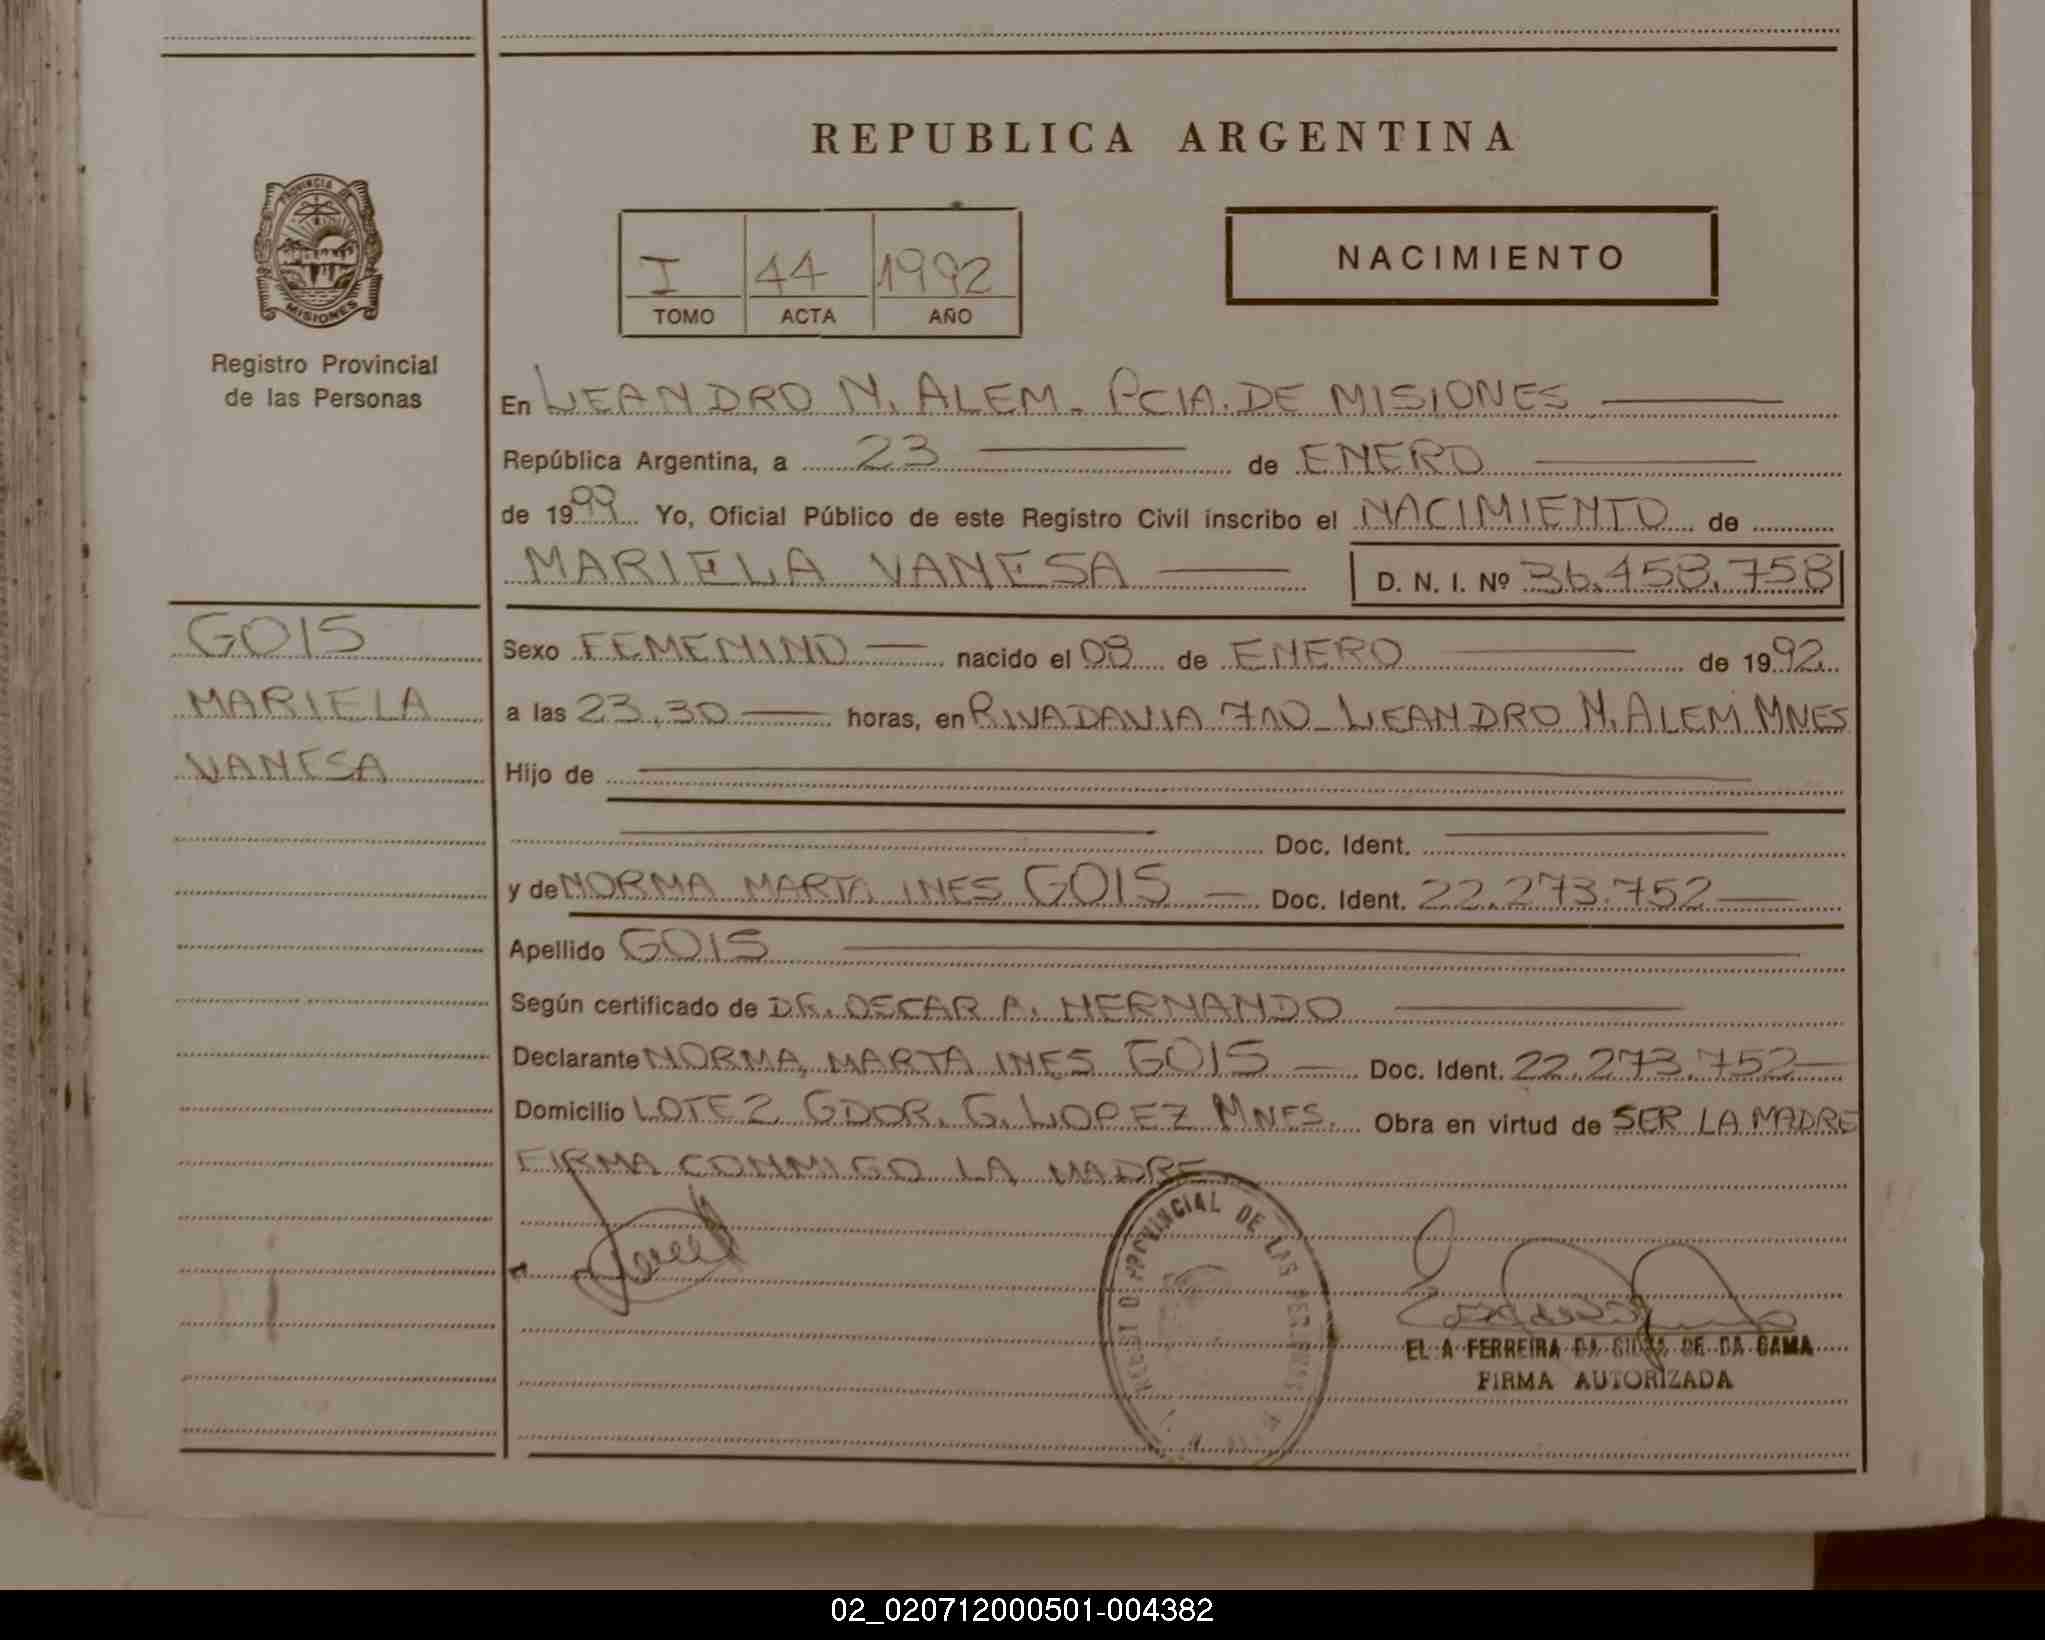 REPUBLICA ARGENTINA
PROVINCIA DE
MISIONES
Registro Provincial
de las Personas
I 44 1992
TOMO ACTA AÑO
NACIMIENTO
En LEANDRO N. ALEM. PCIA. DE MISIONES
República Argentina, a 23 de ENERO
de 1999 Yo, Oficial Público de este Registro Civil inscribo el NACIMIENTO de
MARIELA VANESA D. N. I. Nº 36.458.758
GOIS
MARIELA
VANESA
Sexo FEMENINO nacido el 08 de ENERO de 1992
a las 23,30 horas, en RIVADAVIA 710 LEANDRO N. ALEM MNES
Hijo de
Doc. Ident.
y de NORMA MARTA INES GOIS Doc. Ident. 22.273.752
Apellido GOIS
Según certificado de DR. OSCAR A. HERNANDO
Declarante NORMA, MARTA INES GOIS Doc. Ident. 22.273.752
Domicilio LOTE 2 GDOR. G. LOPEZ MNES. Obra en virtud de SER LA MADRE
FIRMA CONMIGO LA MADRE
PROVINCIAL DE LAS
EL A FERREIRA DA SILVA DE DA GAMA
FIRMA AUTORIZADA
02_020712000501-004382